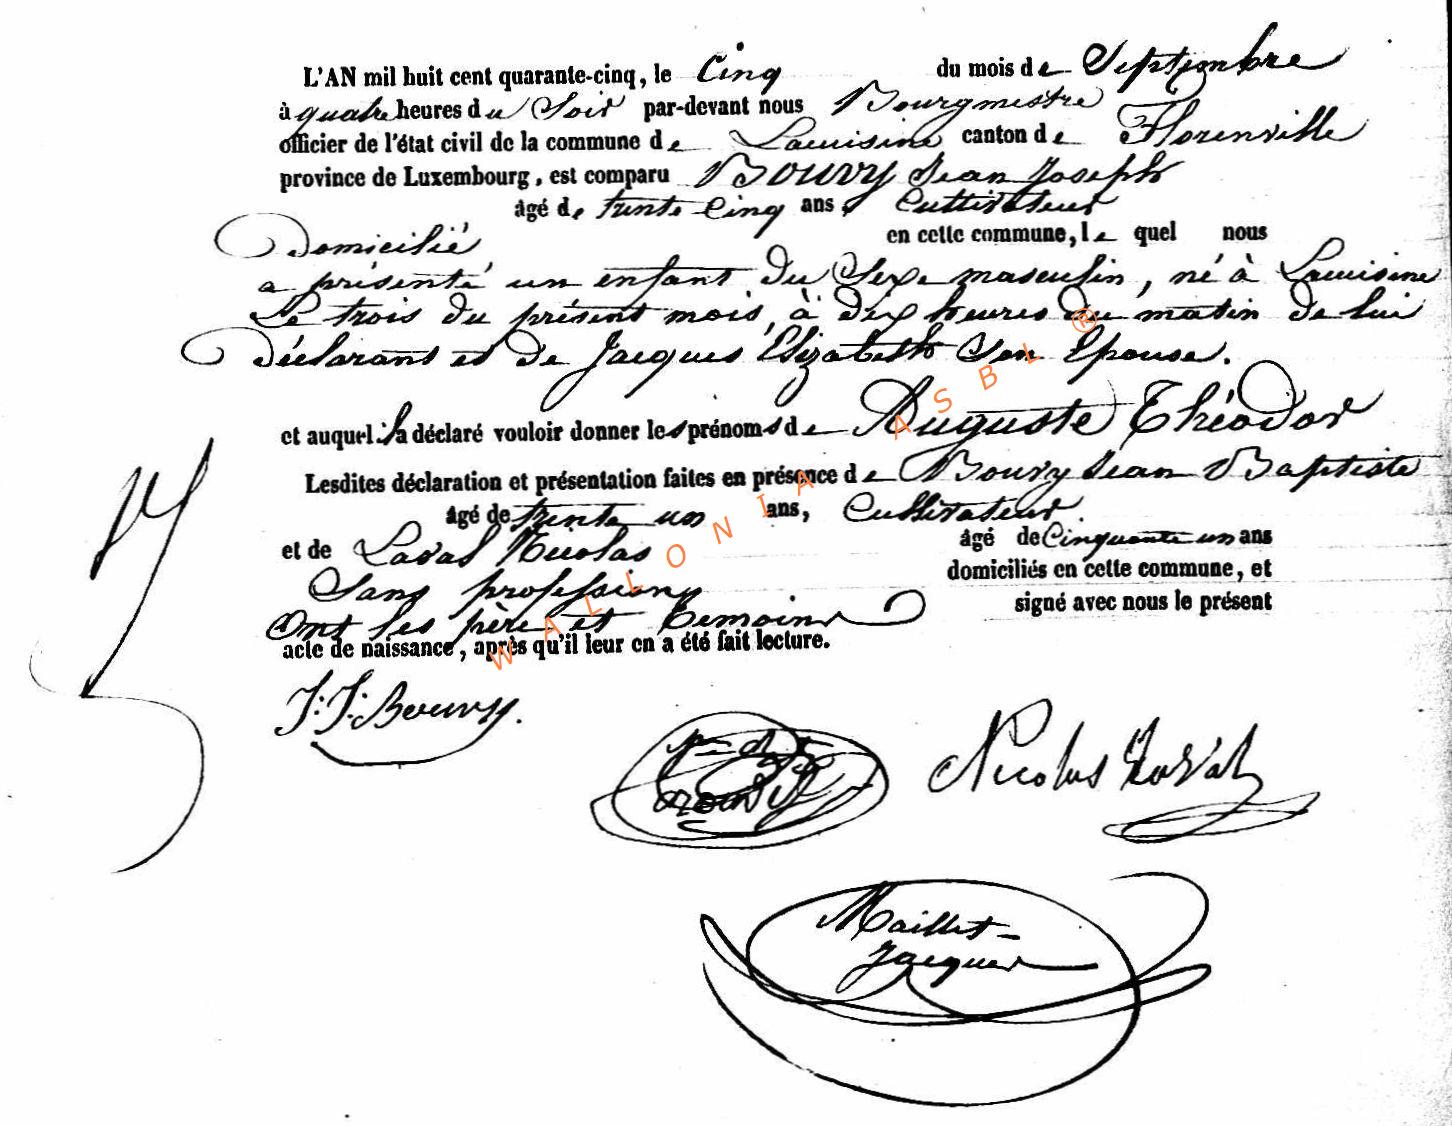 L'AN mil huit cent quarante-cinq, le Cinq du mois de Septembre
à quatre heures du Soir par-devant nous Bourgmestre
officier de l'état civil de la commune de Lacuisine canton de Florenville
province de Luxembourg, est comparu Bouvy Jean Joseph
âgé de trente Cinq ans, Cultivateur
Domicilié en cette commune, le quel nous
a présenté un enfant du Sexe masculin, né à Lacuisine
Le trois du présent mois, à dix heures du matin de lui
Déclarant et de Jacques Elizabeth Son Epouse.
et auquel il a déclaré vouloir donner les prénoms de Auguste Théodor
Lesdites déclaration et présentation faites en présence de Bouvy Jean Baptiste
âgé de trente un ans, Cultivateur.
et de Laval Nicolas âgé de Cinquante un ans
Sans profession domiciliés en cette commune, et
Ont les père et temoins signé avec nous le présent
acte de naissance, après qu'il leur en a été fait lecture.
J:J:Bouvy.
Nicolas LaVal
Maillet-
Jacques
WALLONIA ASBL ®